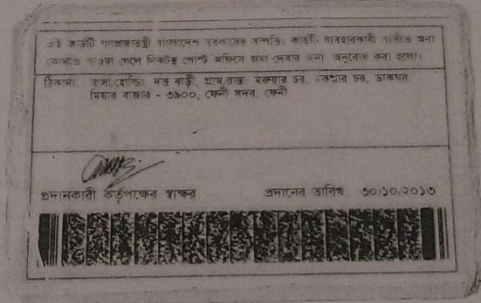 এই কার্ডটি গণপ্রজাতন্ত্রী বাংলাদেশ সরকারের সম্পত্তি। কার্ডটি ব্যবহারকারী ব্যতীত অন্য
কোথাও পাওয়া গেলে নিকটস্থ পোস্ট অফিসে জমা দেবার জন্য অনুরোধ করা হলো।
ঠিকানা: বাসা/হোল্ডিং: দত্ত বাড়ী, গ্রাম/রাস্তা: চর, চর, ডাকঘর
মিয়ার বাজার - ৩৯০০, ফেনী সদর, ফেনী
প্রদানকারী কর্তৃপক্ষের স্বাক্ষর প্রদানের তারিখ ৩০/১০/২০১৩